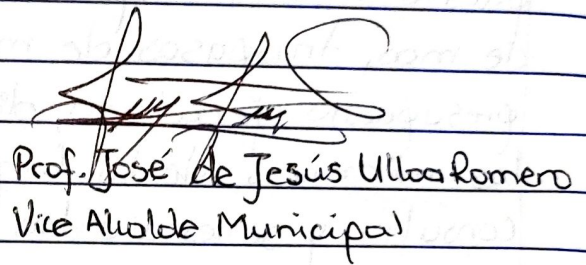 Prof. José de Jesús Ulloa Romero
Vice Alcalde Municipal